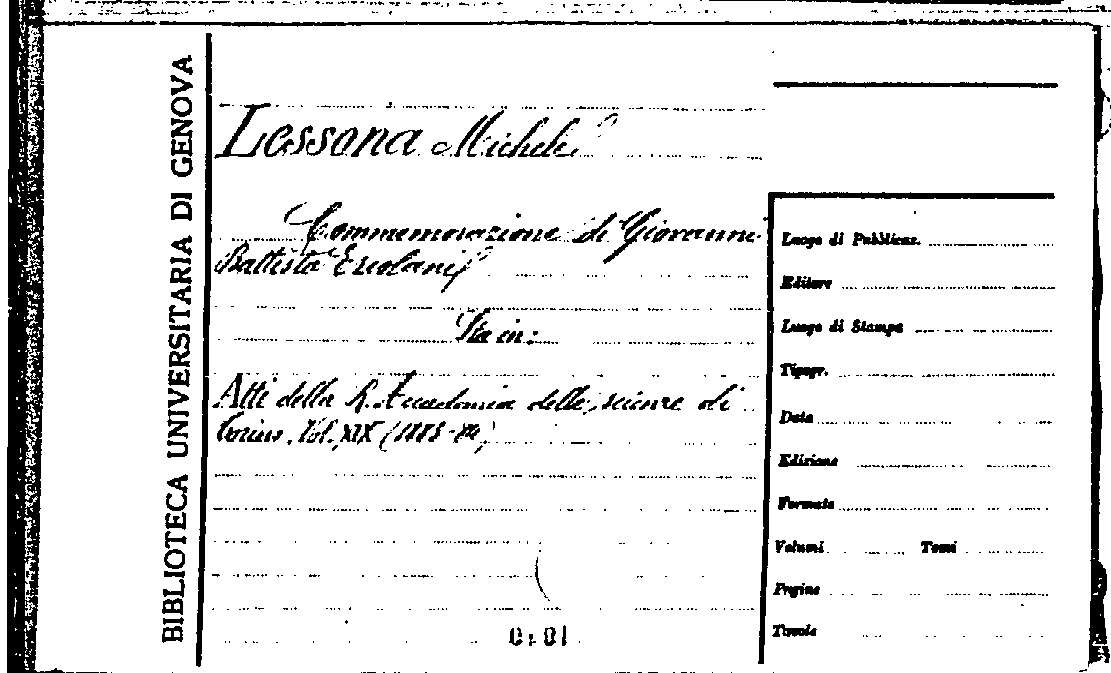 BIBLIOTECA UNIVERSITARIA DI GENOVA
Lessona Michele
Commemorazione di Giovanni
Battista Ercolani
Sta in:
Atti della R. Accademia delle scienze di
Torino, Vol. XIX (1883-84)
Luogo di Pubblicaz.
Editore
Luogo di Stampa
Tipogr.
Data
Edizione
Formato
Volumi Tomi
Pagine
Tavole